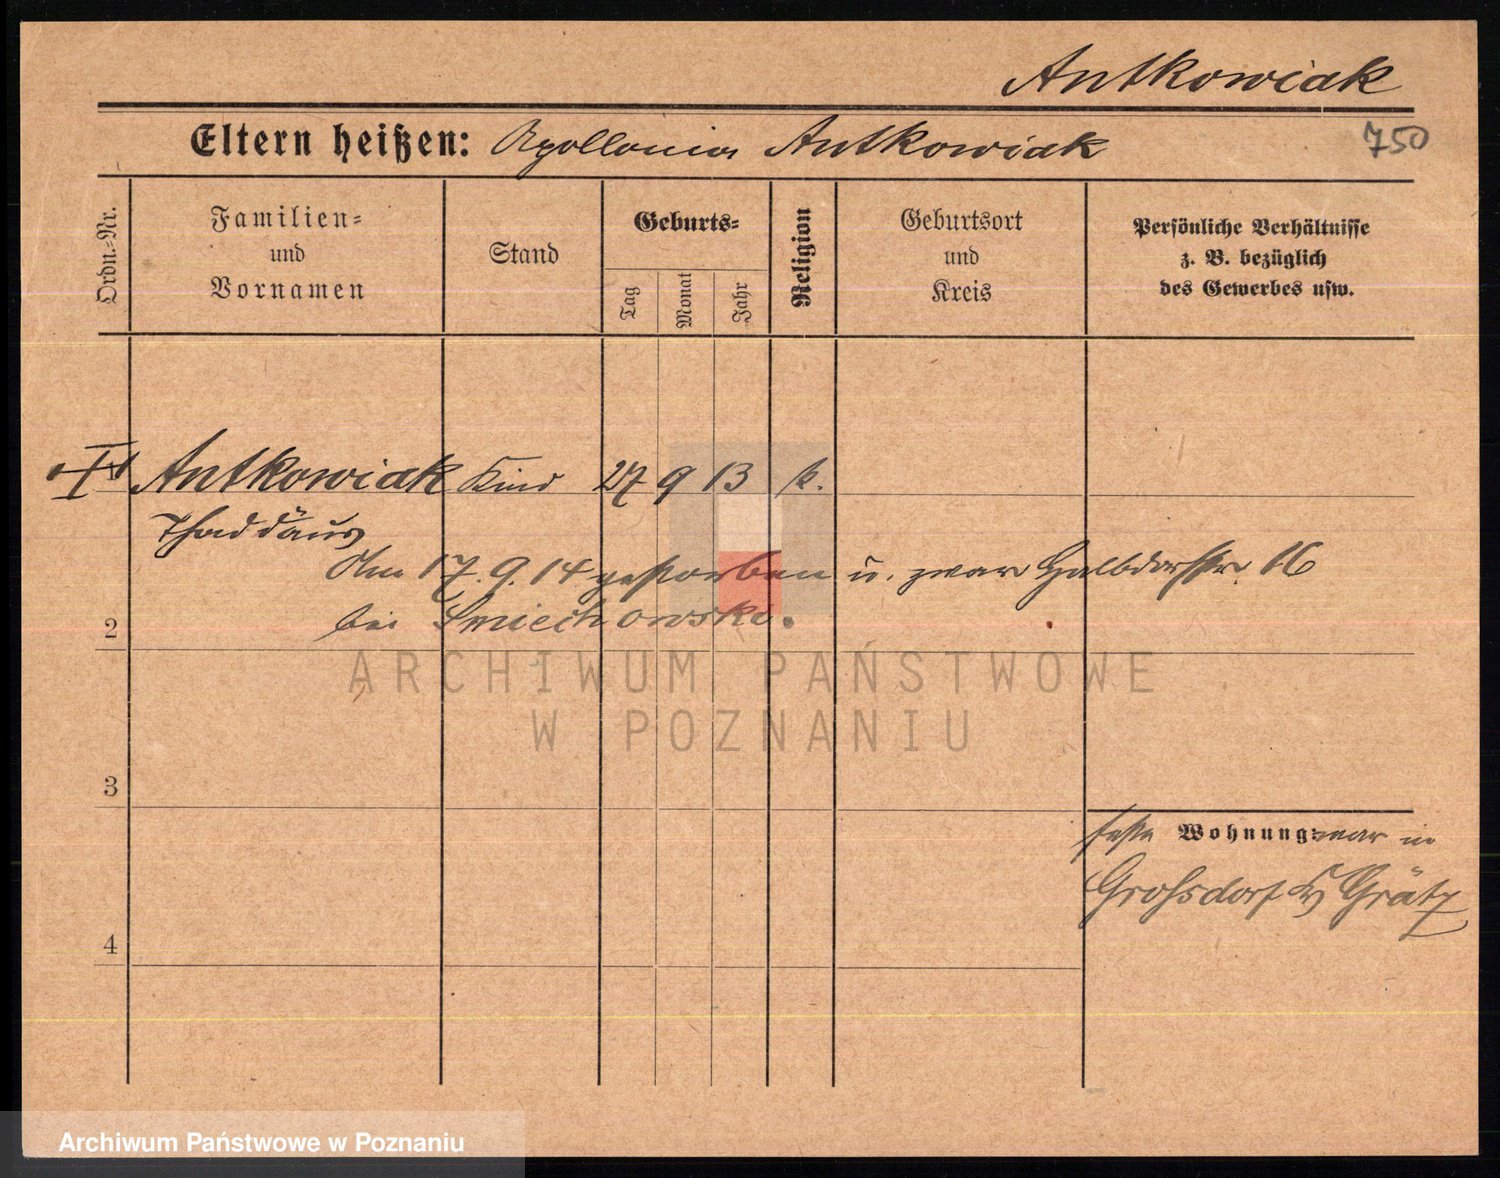 Antkowiak
Eltern heißen: Apollonia Antkowiak
750
Ordn.-Nr.
Familien-
und
Vornamen
Stand
Geburts-
Tag
Monat
Jahr
Religion
Geburtsort
und
Kreis
Persönliche Verhältnisse
z. B. bezüglich
des Gewerbes usw.
1 Antkowiak Kind 27 9 13 k.
Thaddäus
Am 17.9.14 gestorben u. zwar Halbdorfstr. 16
bei Smiechowski.
2
3
feste Wohnung war in
Großdorf Grätz
4
ARCHIWUM PAŃSTWOWE
W POZNANIU
Archiwum Państwowe w Poznaniu